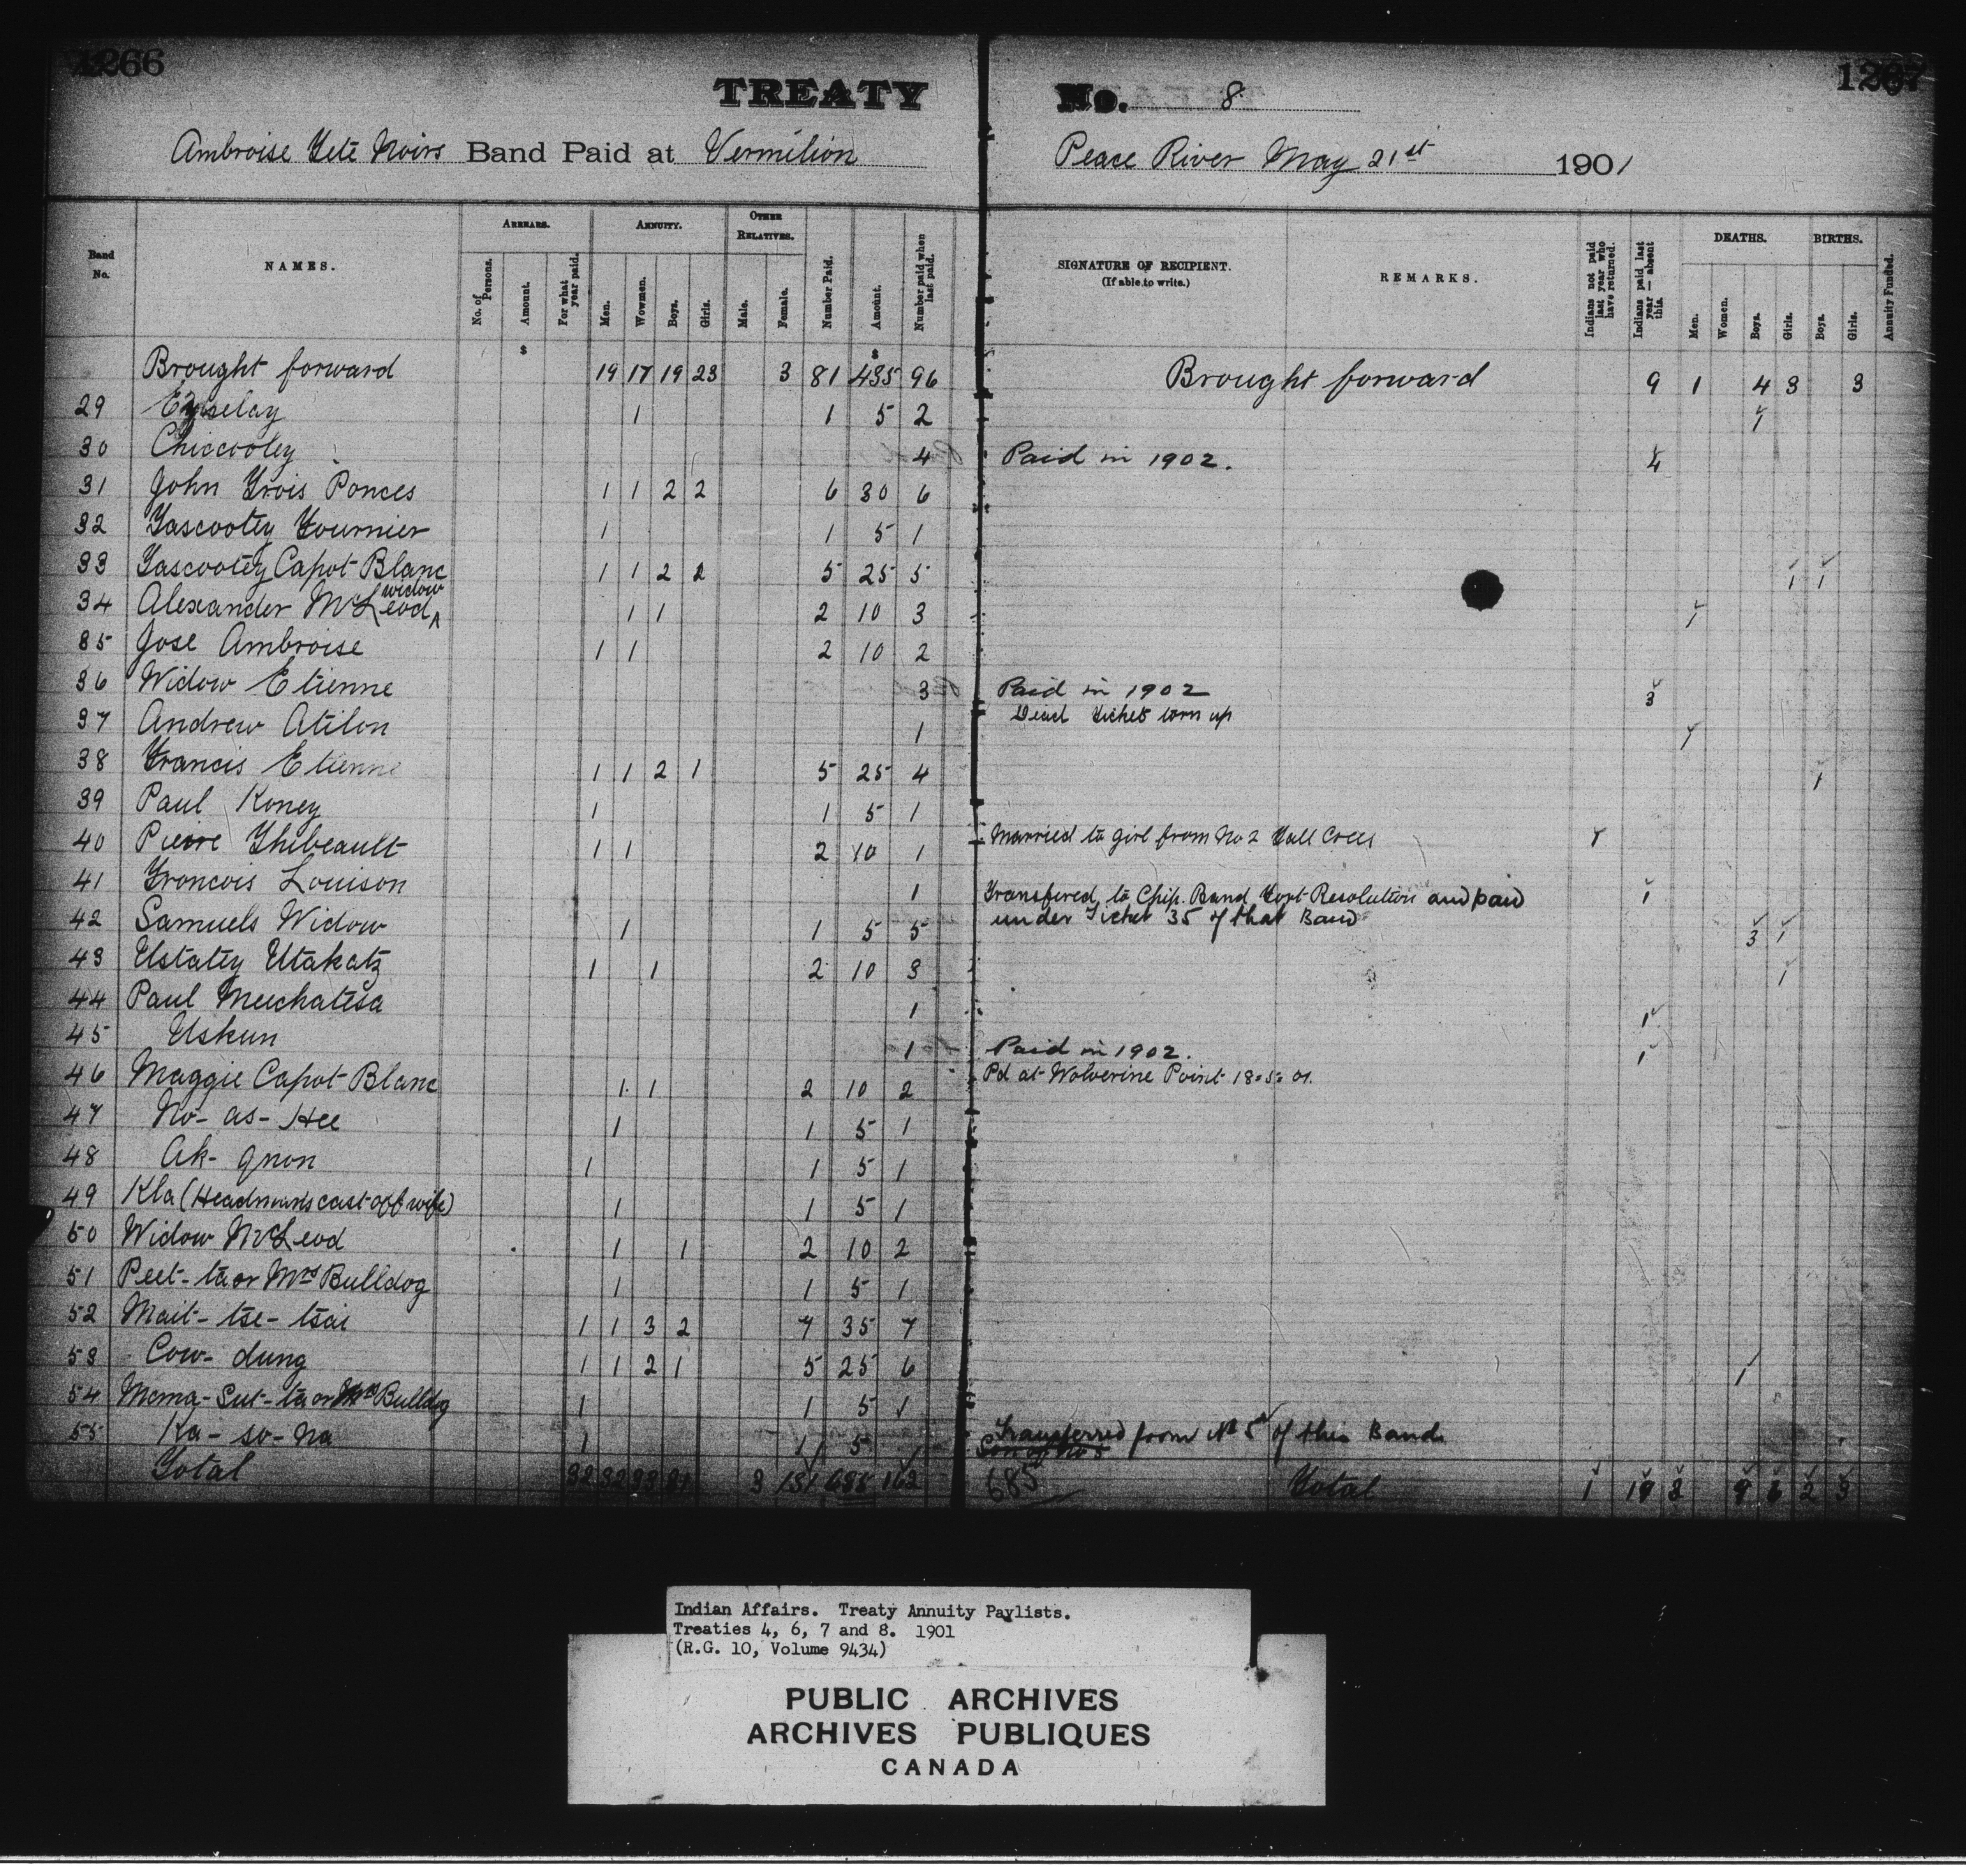 1266
1267
TREATY No. 8
Ambroise Tete Noirs Band Paid at Vermilion Peace River May 21st 1901
Band No. NAMES. ARREARS. ANNUITY. OTHER RELATIVES. Number Paid. Amount. Number paid when last paid. SIGNATURE OF RECIPIENT. (If able to write.) REMARKS. Indians not paid last year who have returned. Indians paid last year — absent this. DEATHS. BIRTHS. Annuity Funded.
No. of Persons. Amount. For what year paid. Men. Wowmen. Boys. Girls. Male. Female. Men. Women. Boys. Girls. Boys. Girls.
$ $
Brought forward 19 17 19 23 3 81 435 96 Brought forward 9 1 4 3 3
29 1 1 5 2 1
30 Chiccooley 4 Paid in 1902. 4
31 John Trois Ponces 1 1 2 2 6 30 6
32 Tascootey Fournier 1 1 5 1
33 Tascootey Capot Blanc 1 1 2 2 5 25 5 1 1
34 Alexander McLeod widow 1 1 2 10 3 1
35 Jose Ambroise 1 1 2 10 2
36 Widow Etienne 3 Paid in 1902 3
37 Andrew Atilon 1 Dead Ticket torn up 1
38 Francis Etienne 1 1 2 1 5 25 4 1
39 Paul Koney 1 1 5 1
40 Pierre Thibeault 1 1 2 10 1 Married to girl from No 2 Tall Crees 1
41 Francois Louison 1 Transfered to Chip. Band Govt Resolution and paid 1
under Ticket 35 of that Band
42 Samuels Widow 1 1 5 5 3 1
43 Ustatey Utakatz 1 1 2 10 3 1
44 Paul Meuchatesa 1 1
45 Uskun 1 Paid in 1902. 1
46 Maggie Capot Blanc 1 1 2 10 2 Pd at Wolverine Point 18.5.01.
47 No-as-Hee 1 1 5 1
48 Ak-gnon 1 1 5 1
49 Kla (Headmans cast off wife) 1 1 5 1
50 Widow McLeod 1 1 2 10 2
51 Peet-ta or Mrs Bulldog 1 1 5 1
52 Mait-tse-tsai 1 1 3 2 7 35 7
53 Cow-dung 1 1 2 1 5 25 6 1
54 Moma-Sut-ta or Bulldog 1 1 5 1
55 Ka-so-na 1 1 5 1 Transferred from No 5 of this Band
Son of No 5
Total 32 32 33 31 3 131 685 Total 1 19 3 9 6 2 3
685
Indian Affairs. Treaty Annuity Paylists.
Treaties 4, 6, 7 and 8. 1901
(R.G. 10, Volume 9434)
PUBLIC ARCHIVES
ARCHIVES PUBLIQUES
CANADA